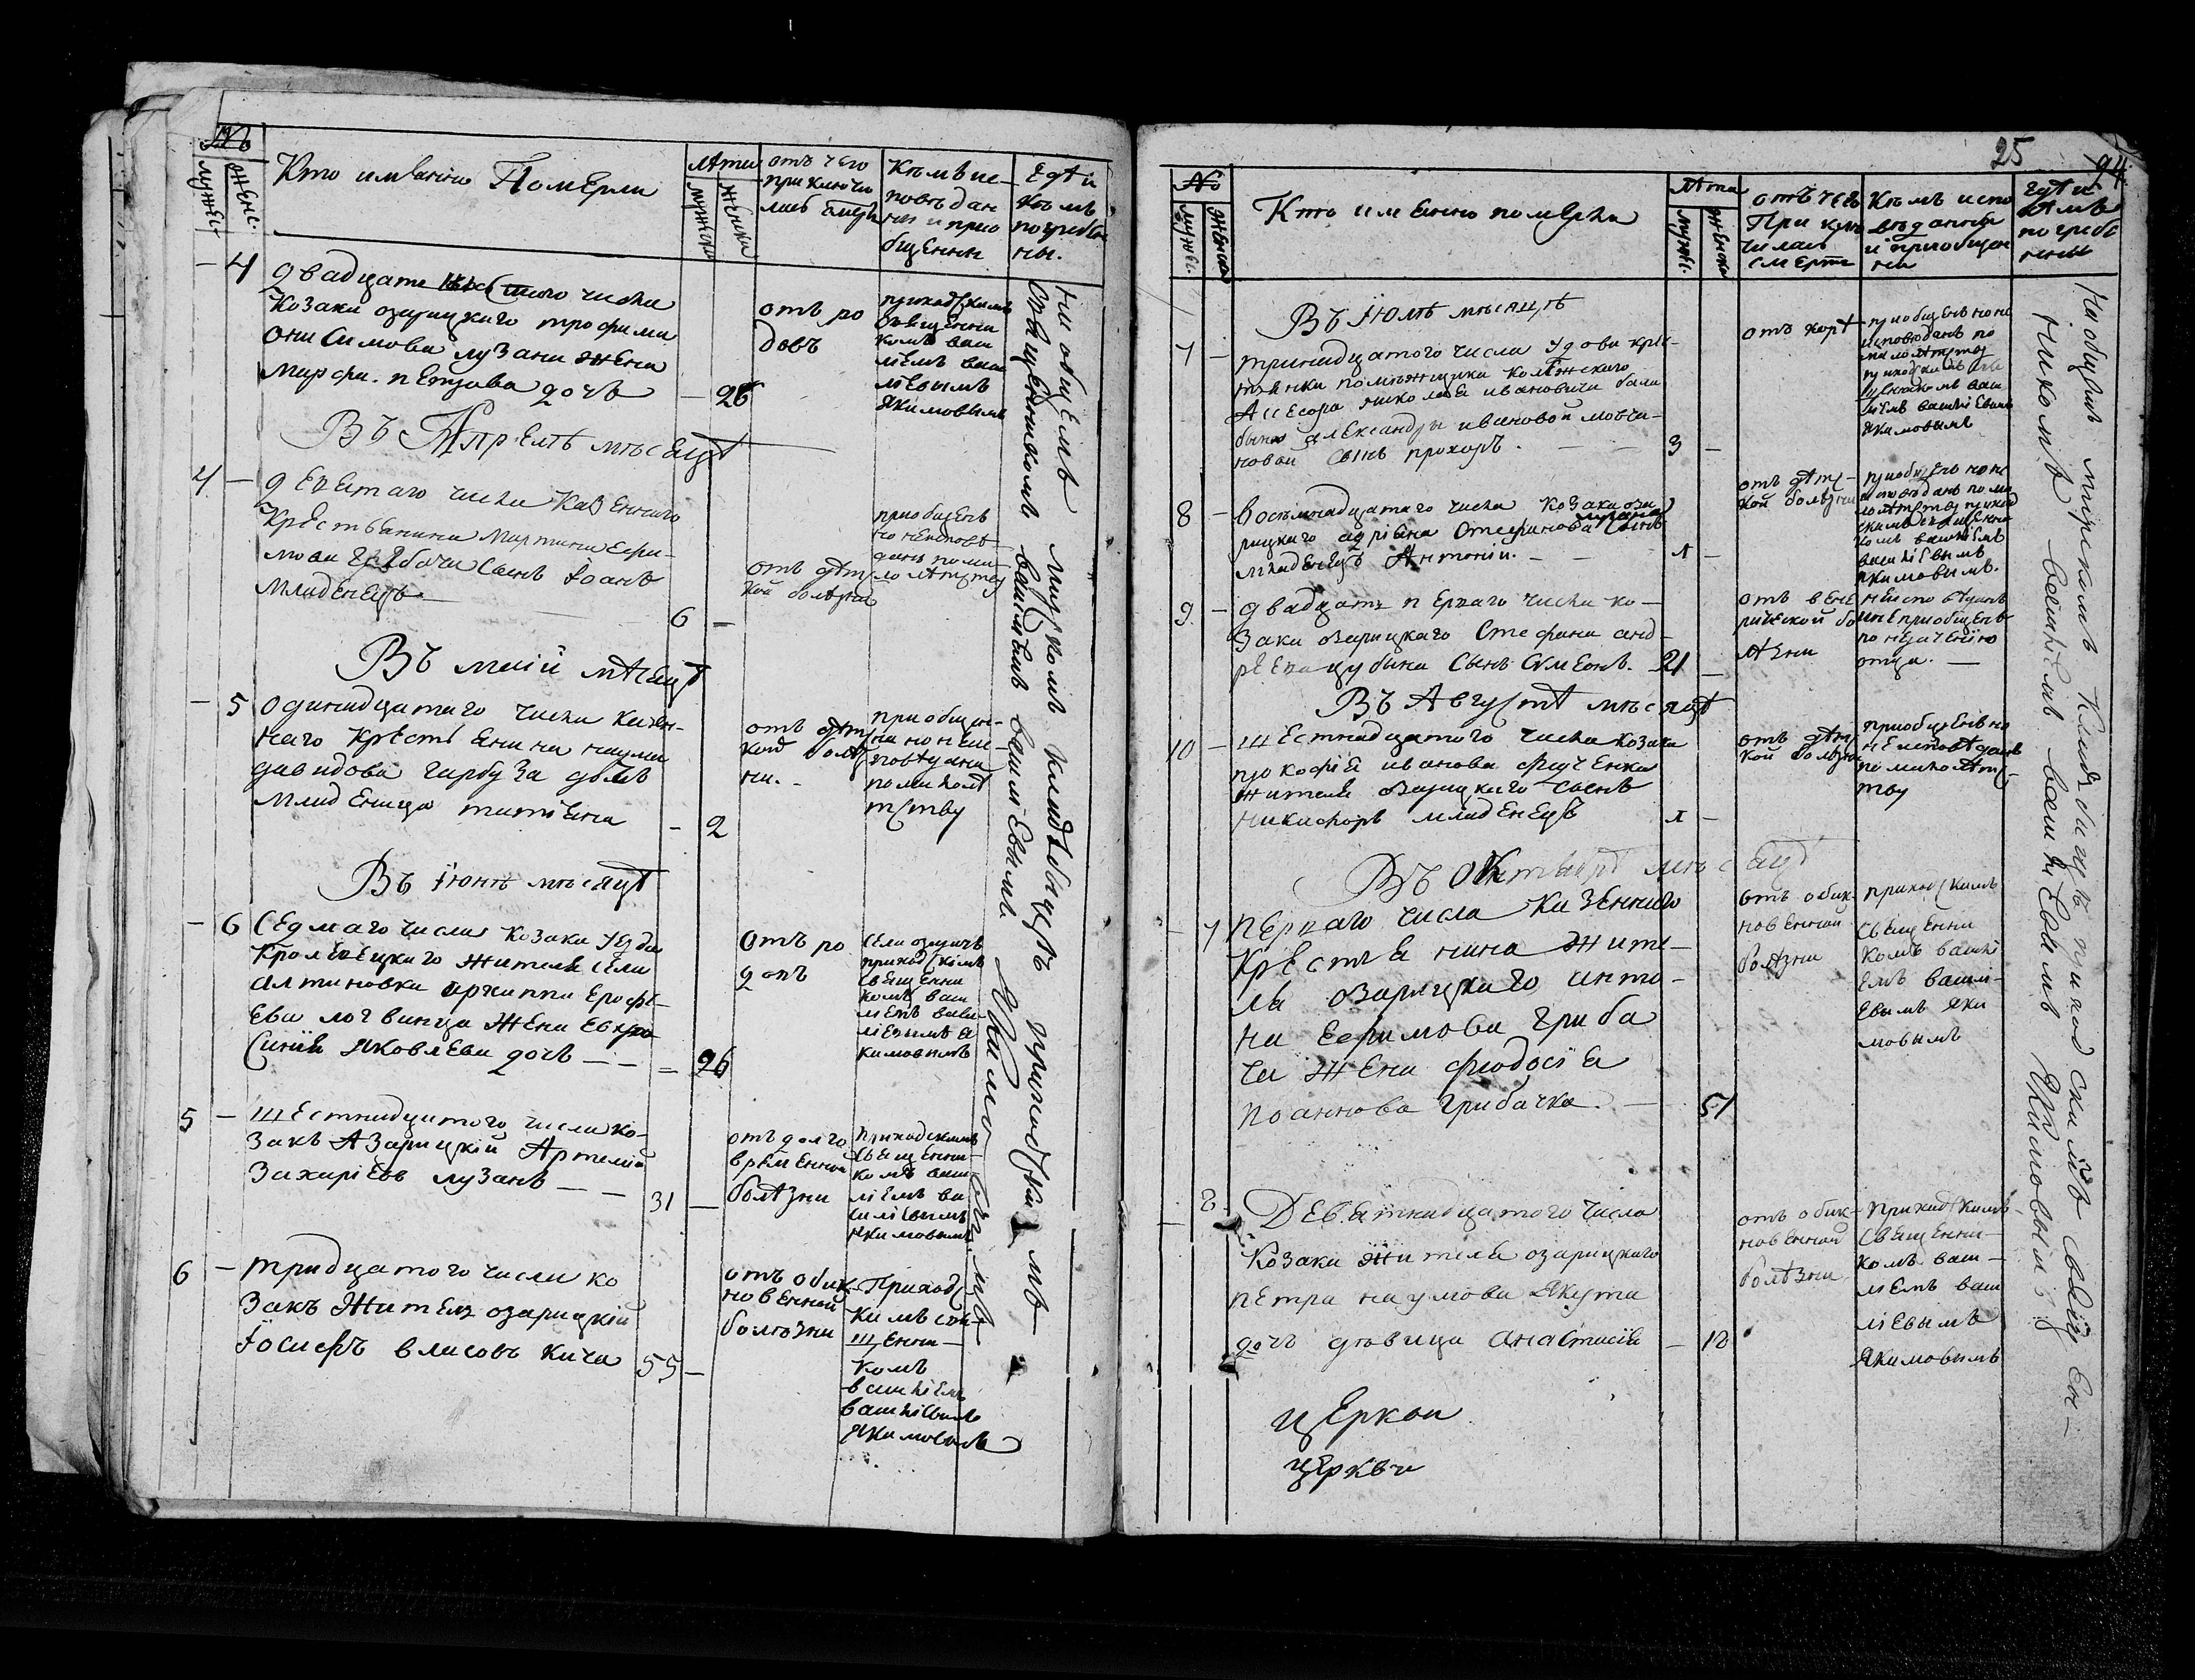 №
мужес.
женс.
Кто имѣнно Померли
лѣта
мужеска
женска
отъ чего
приключи
лась смерть
Кѣмъ ис-
повѣдан
ны и прио
бщенны
Гдѣ и
кѣмъ
погребе
ны.
4
двадцать шестого числа
козака озарицкого трофима
онисимова лузана жена
марфа петрова дочь
26
отъ ро
довъ
приходскимъ
священни
комъ васи
лѣемъ васи
лѣевымъ
Якимовымъ
Въ Апрелѣ мѣсецѣ
4
девѣтаго числа Казенного
Крѣстьѣнина Мартина Ефи-
мова Грѣбача Сынъ Іоанъ
младенецъ
6
отъ дѣтс
кой болѣзни
приобщенъ
но неиспове
данъ по ма
лолѣтству
Въ маій мѣсецѣ
5
одинадцатаго числа казѣн-
наго Крѣстьѣнина наума
давидова гарбуза дочь
младеница татіѣна
2
отъ дѣтс
кой болѣз
ни.
приобщен-
на но неис-
повѣдана
по малолѣ
тству
Въ іюнѣ мѣсяцѣ
6
Седмаго числа козака уезда
Кролевецкого жителѣ села
алтиновки архиппа Ерофѣ-
ева логвинца жена Евфро
синія Яковлева дочь
26
Отъ ро
довъ
села озаричъ
приходскимъ
священни
комъ васи
лѣемъ васи
лѣевымъ я
кимовымъ
5
шестнадцатого числа ко-
закъ Азарицкій Артемій
Захаріевъ лузанъ
31
отъ долго
врѣменной
болѣзни
Приходскимъ
священни-
комъ васи-
лѣемъ ва
силѣевымъ
якимовымъ
6
тридцатого числа ко
закъ Житель озарицкій
Іосифъ власовъ Кича
55
отъ обик-
новенной
болѣзни
Приходс
кимъ свя-
щенни-
комъ
василіемъ
василіевымъ
Якимовымъ
на общемъ мирскомъ кладбищѣ приходскимъ
священникомъ василѣемъ васильевымъ Якимо-
вымъ
25
94
№
мужес.
женска
Кто имѣнно померли
лѣта
мужес.
женска
отъ чего
При клю
чилась
смерть
Кѣмъ испо
вѣданны
и приобщен
ны
Гдѣ и
кѣмъ
погребе
нны
Въ Іюлѣ мѣсяцѣ
7
тринадцатого числа удови крѣс-
тянки помѣжщика колѣжского
Асесора николаѣ ивановича бала
бына александры ивановой мовча-
новой сынъ прохоръ.
3
отъ корѣ
приобщенъ но не
исповѣданъ по
малолѣтству
приходскимъ свя
щенникомъ васи
лѣемъ василѣевымъ
Якимовымъ
8
восѣмнадцатого числа козака оза
рицкого адріѣна Стефанова Сынъ
младенецъ Антоній.
л
отъ дѣтс-
кой болѣзни
приобщенъ но не
исповѣданъ по ма
лолѣтству приход
скимъ священни
комъ василіемъ
василіевымъ
якимовымъ.
9
двадцать первого числа ко-
зака озарицкого Стефана анд-
рѣева цубина Сынъ Сумеонъ.
21
отъ вене
рической бо
лѣзни
неисповѣданъ
и не приобщенъ
по нерачению
отца.
Въ Августѣ мѣсяцѣ
10
шестнадцатого числа козака
прокофія иванова фученка
жителя озарицкого сынъ
никифоръ младенецъ
л
отъ дѣтс
кой болѣзни
приобщенъ но
неисповѣданъ
по малолѣтс-
тву
Въ Октябрѣ мѣсецѣ
7
первого числа казенного
крѣстьѣнина жите-
лѣ озарицкого анто-
на ефимова Гриба
ча жена феодосіѣ
иоаннова Грибачка.
51
отъ обик-
новенной
болѣзни
приходскимъ
священни
комъ васил
емъ васил-
евымъ яки
мовымъ
8
Девѣтнадцатого числа
Козака жителѣ озарицкого
петра наумова Якута
дочъ дѣвица анастасіѣ
18
отъ обик-
новенной
болѣзни
приходскимъ
священни-
комъ васи-
лѣемъ васи
лѣевымъ
якимовымъ
церкви
церкви
На общемъ мирскомъ кладбищѣ приходскимъ священ-
никомъ василіемъ василіевымъ Якимовымъ